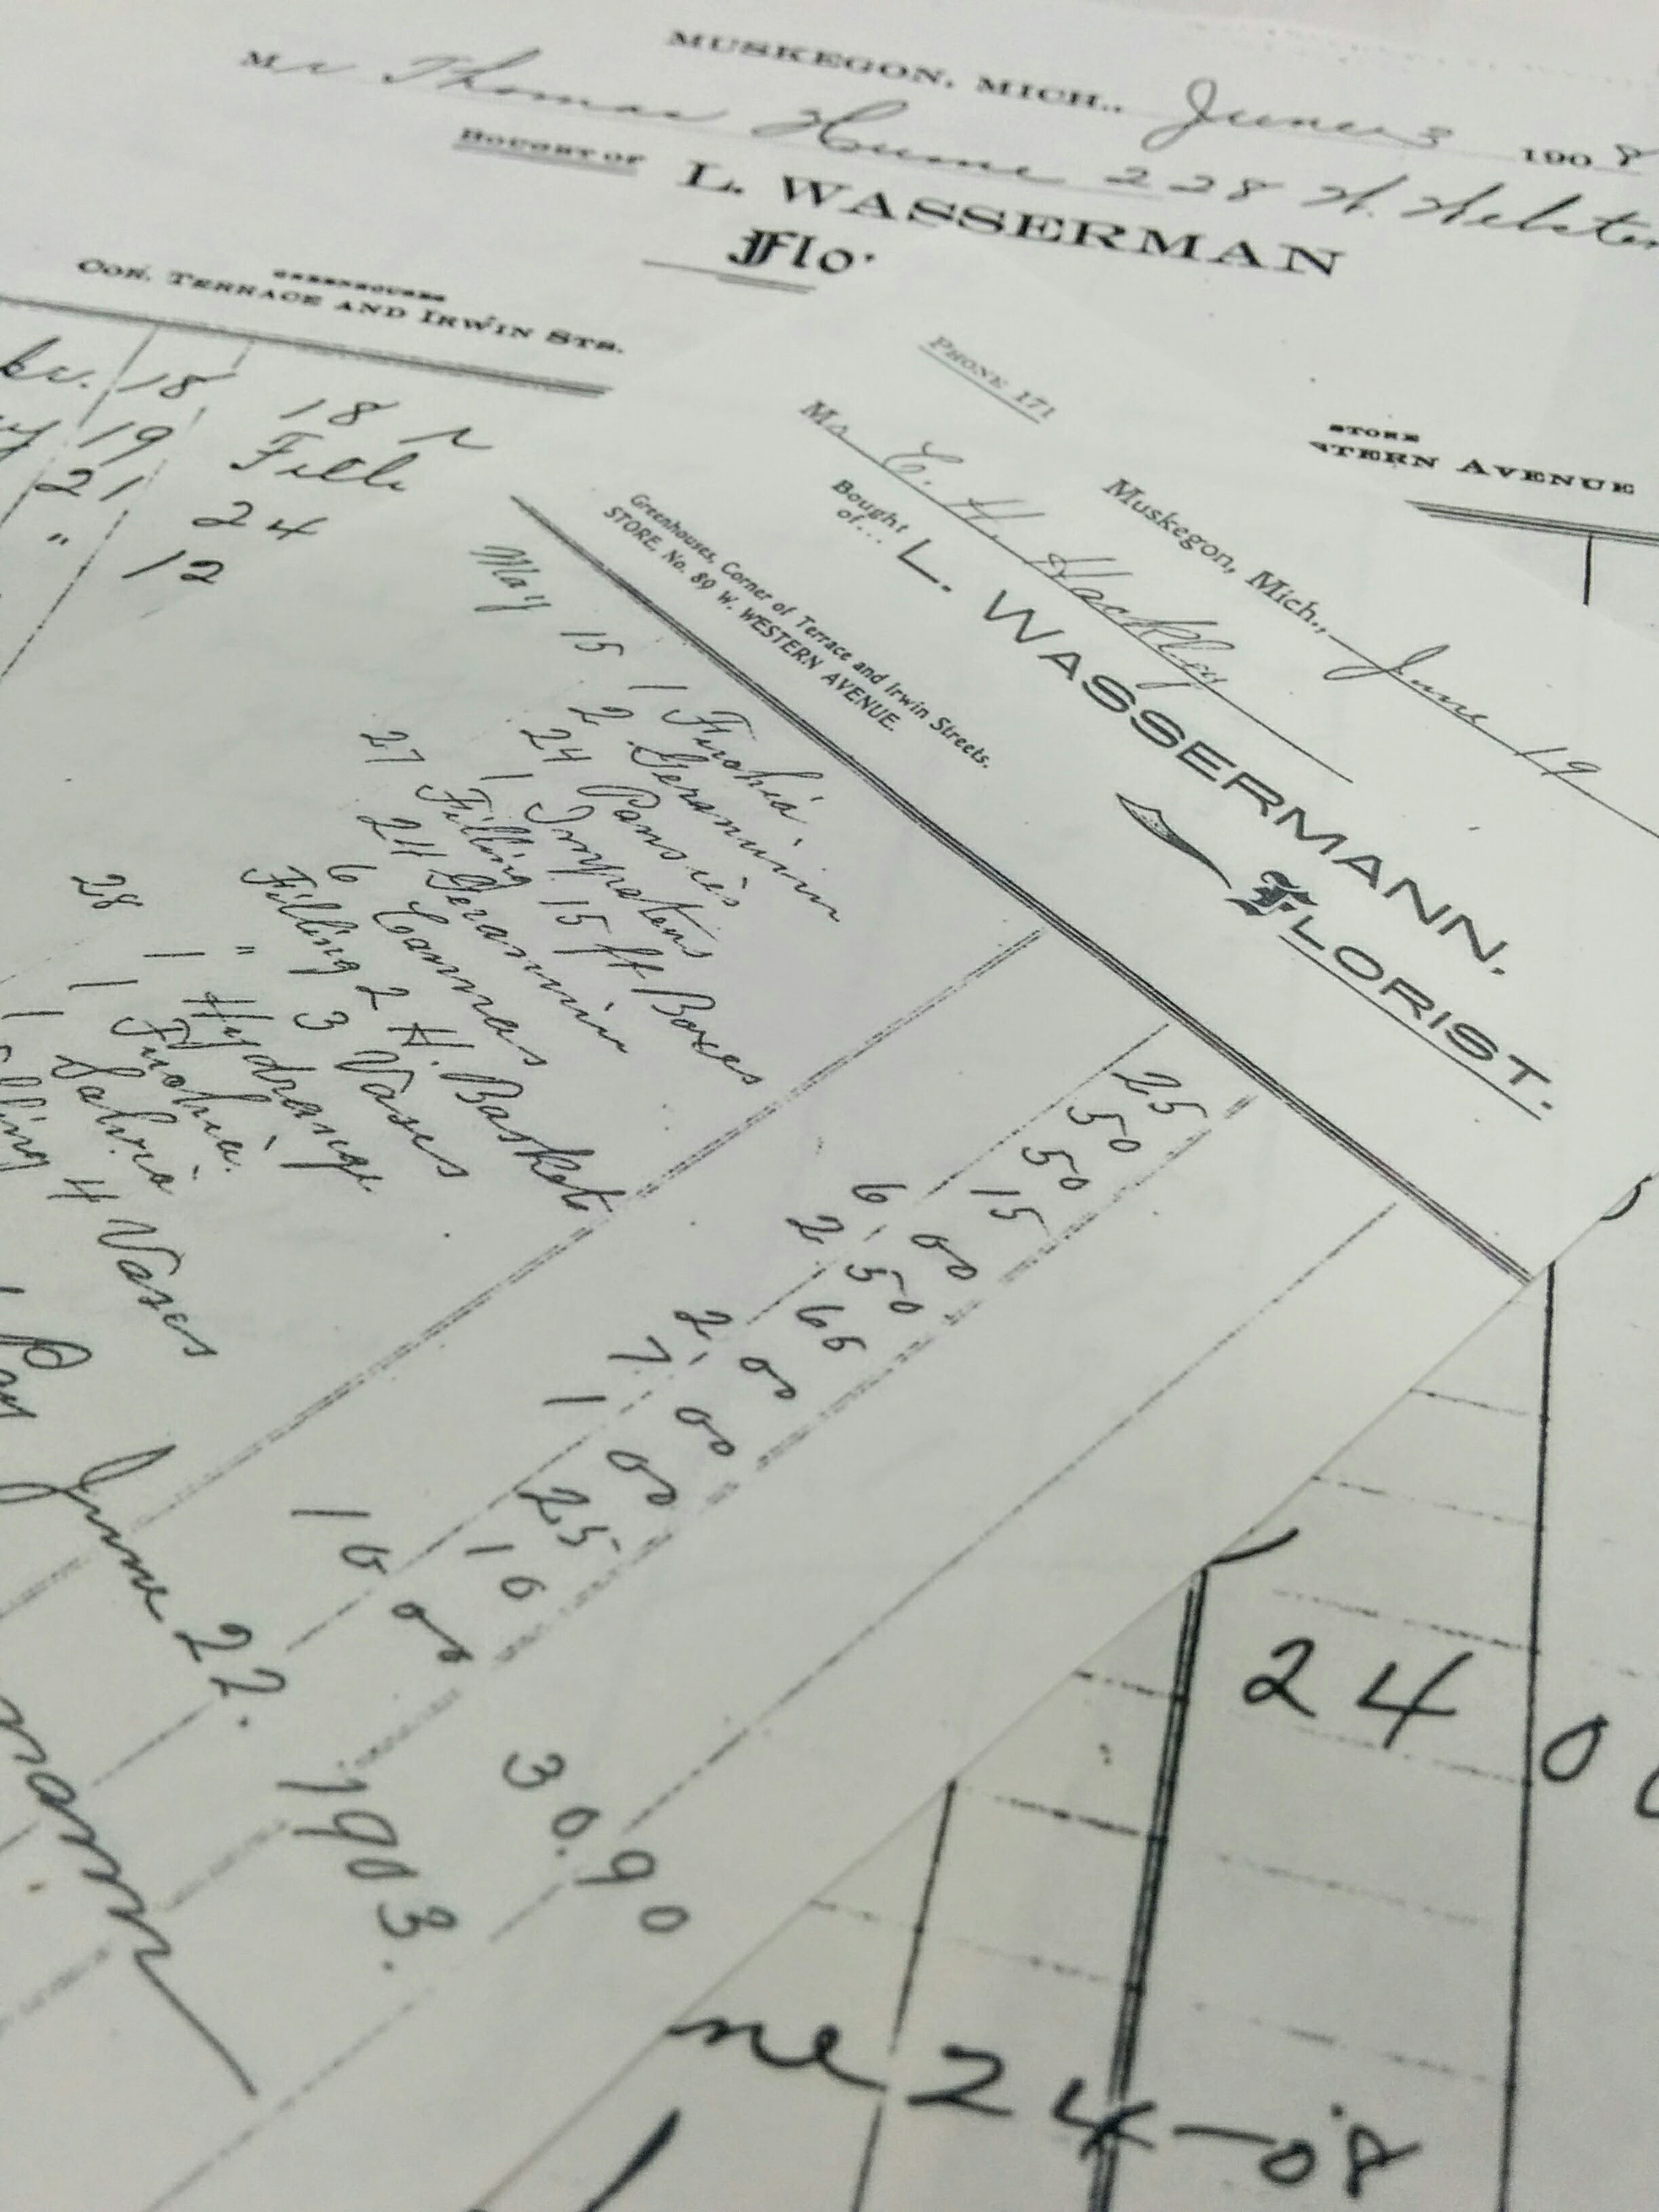 MUSKEGON, MICH., June 3 1908
Mr Thomas Hume 228 W. Webster
BOUGHT OF L. WASSERMAN
Flo
GREENHOUSES
COR. TERRACE AND IRWIN STS.
STORE
STERN AVENUE
18 18
19 Fill
21 24
" 12
PHONE 171
Muskegon, Mich., June 19
Mr E. H. Hackley
Bought of... L. WASSERMANN,
FLORIST.
Greenhouses, Corner of Terrace and Irwin Streets.
STORE, No. 89 W. WESTERN AVENUE.
May 15 1 Fuchia 25
2 Geranium 50
24 Pansies 50
1 Impatiens 15
27 Filling 15 ft Boxes 6 00
24 Geranium 2 50
6 Cannas 66
Filling 2 H. Basket 2 00
28 " 3 Vases 7 00
1 Hydrange 1 00
1 Fuchia 25
1 Salvia 10
lling 4 Vases 10 00
30.90
June 22. 1903.
mann
24 00
ne 24-08